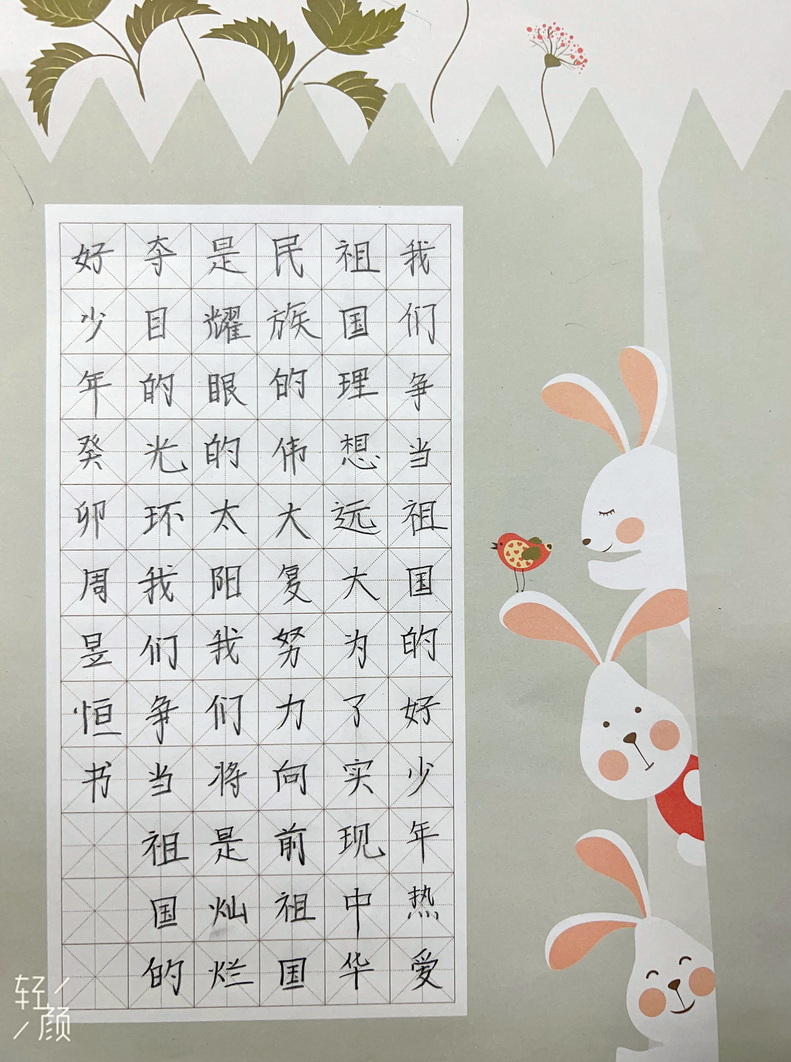 我们争当祖国的好少年热爱
祖国理想远大为了实现中华
民族的伟大复努力向前祖国
是耀眼的太阳我们将是灿烂
夺目的光环我们争当祖国的
好少年癸卯周昱恒书
轻颜